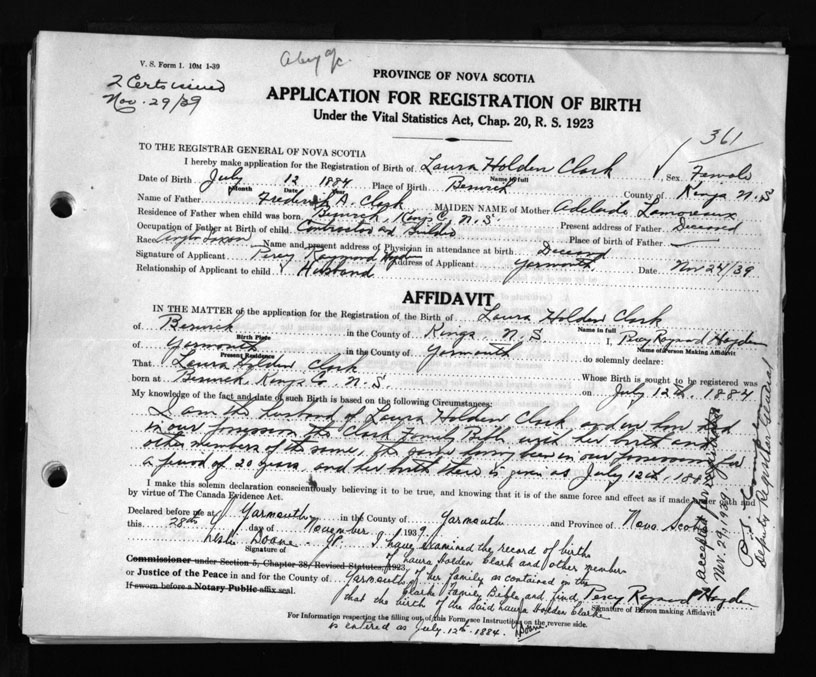 V. S. Form 1. 10M 1-39
2 Certs issued
Nov. 29/39
PROVINCE OF NOVA SCOTIA
APPLICATION FOR REGISTRATION OF BIRTH
Under the Vital Statistics Act, Chap. 20, R. S. 1923
361
TO THE REGISTRAR GENERAL OF NOVA SCOTIA
I hereby make application for the Registration of Birth of Laura Holden Clark Sex Female
Name in full
Date of Birth July 12 1884 Place of Birth Berwick County of Kings N.S
Month Date Year
Name of Father Frederick A. Clark MAIDEN NAME of Mother Adelaide Lamoreaux
Residence of Father when child was born Berwick, Kings Co, N.S. Present address of Father Deceased
Occupation of Father at Birth of child Contractor and Builder Place of birth of Father —
Race Anglo Saxon Name and present address of Physician in attendance at birth Deceased
Signature of Applicant Percy Raymond Hayden Address of Applicant Yarmouth Date Nov 24/39
Relationship of Applicant to child Husband
AFFIDAVIT
IN THE MATTER of the application for the Registration of the Birth of Laura Holden Clark
Name in full
of Berwick in the County of Kings, N.S I, Percy Raymond Hayden
Birth Place Name of Person Making Affidavit
of Yarmouth in the County of Yarmouth do solemnly declare:
Present Residence
That Laura Holden Clark Whose Birth is sought to be registered was
born at Berwick, Kings Co N.S. on July 12th, 1884
My knowledge of the fact and date of such Birth is based on the following Circumstances:
I am the husband of Laura Holden Clark, and we have had
in our possession the Clark Family Bible with her birth and
other members of the same, the same having been in our possession for
a period of 20 years, and her birth there is given as July 12th, 1884
I make this solemn declaration conscientiously believing it to be true, and knowing that it is of the same force and effect as if made under oath and
by virtue of The Canada Evidence Act.
Declared before me at Yarmouth in the County of Yarmouth and Province of Nova Scotia
this 28th day of November 1939.
Leslie Doane J.P. I have examined the record of birth
Signature of
of Laura Holden Clark and other members
Commissioner under Section 5, Chapter 38, Revised Statutes, 1923,
or Justice of the Peace in and for the County of Yarmouth of her family as contained in the
If sworn before a Notary Public affix seal.
Clarke Family Bible and find Percy Raymond Hayden
that the birth of the said Laura Holden Clarke
Signature of Person making Affidavit
For Information respecting the filling out of this Form, see Instruction on the reverse side.
is entered as July 12th 1884. LDoane
Accepted for registration
Nov. 29, 1939
Deputy Registrar General